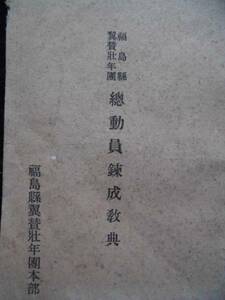 福島縣
翼贊壯年團
總動員鍊成教典
福島縣翼贊壯年團本部